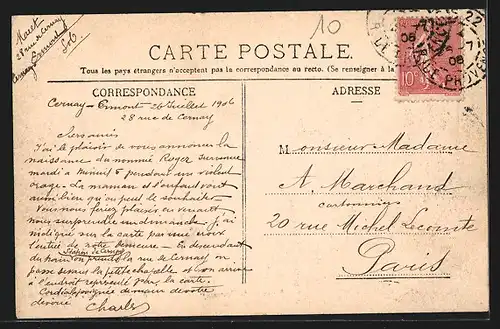 Maret
28 rue de Cernay
Cernay Ermont
S&O
10
CARTE POSTALE.
Tous les pays étrangers n'acceptent pas la correspondance au recto. (Se renseigner à la
CORRESPONDANCE
ADRESSE
Cernay-Ermont 26 Juillet 1906
28 rue de Cernay
Chers amis
J'ai le plaisir de vous annoncer la
naissance du nommé Roger survenue
mardi à minuit 5 pendant un violent
orage. La maman et l'enfant vont
aussi bien qu'on peut le souhaiter.
Vous nous feriez plaisir en venant
nous surprendre un dimanche. J'ai
indiqué sur la carte par une croix
l'entrée de notre demeure. En descendant
Station de Cernay
du train on prend la rue de Cernay on
passe devant la petite chapelle et on arrive
à l'endroit représenté par la carte.
Cordiale poignée de main de votre
dévoué
Charles
Monsieur Madame
A. Marchand
cartonnier
20 rue Michel Lecomte
Paris
10c